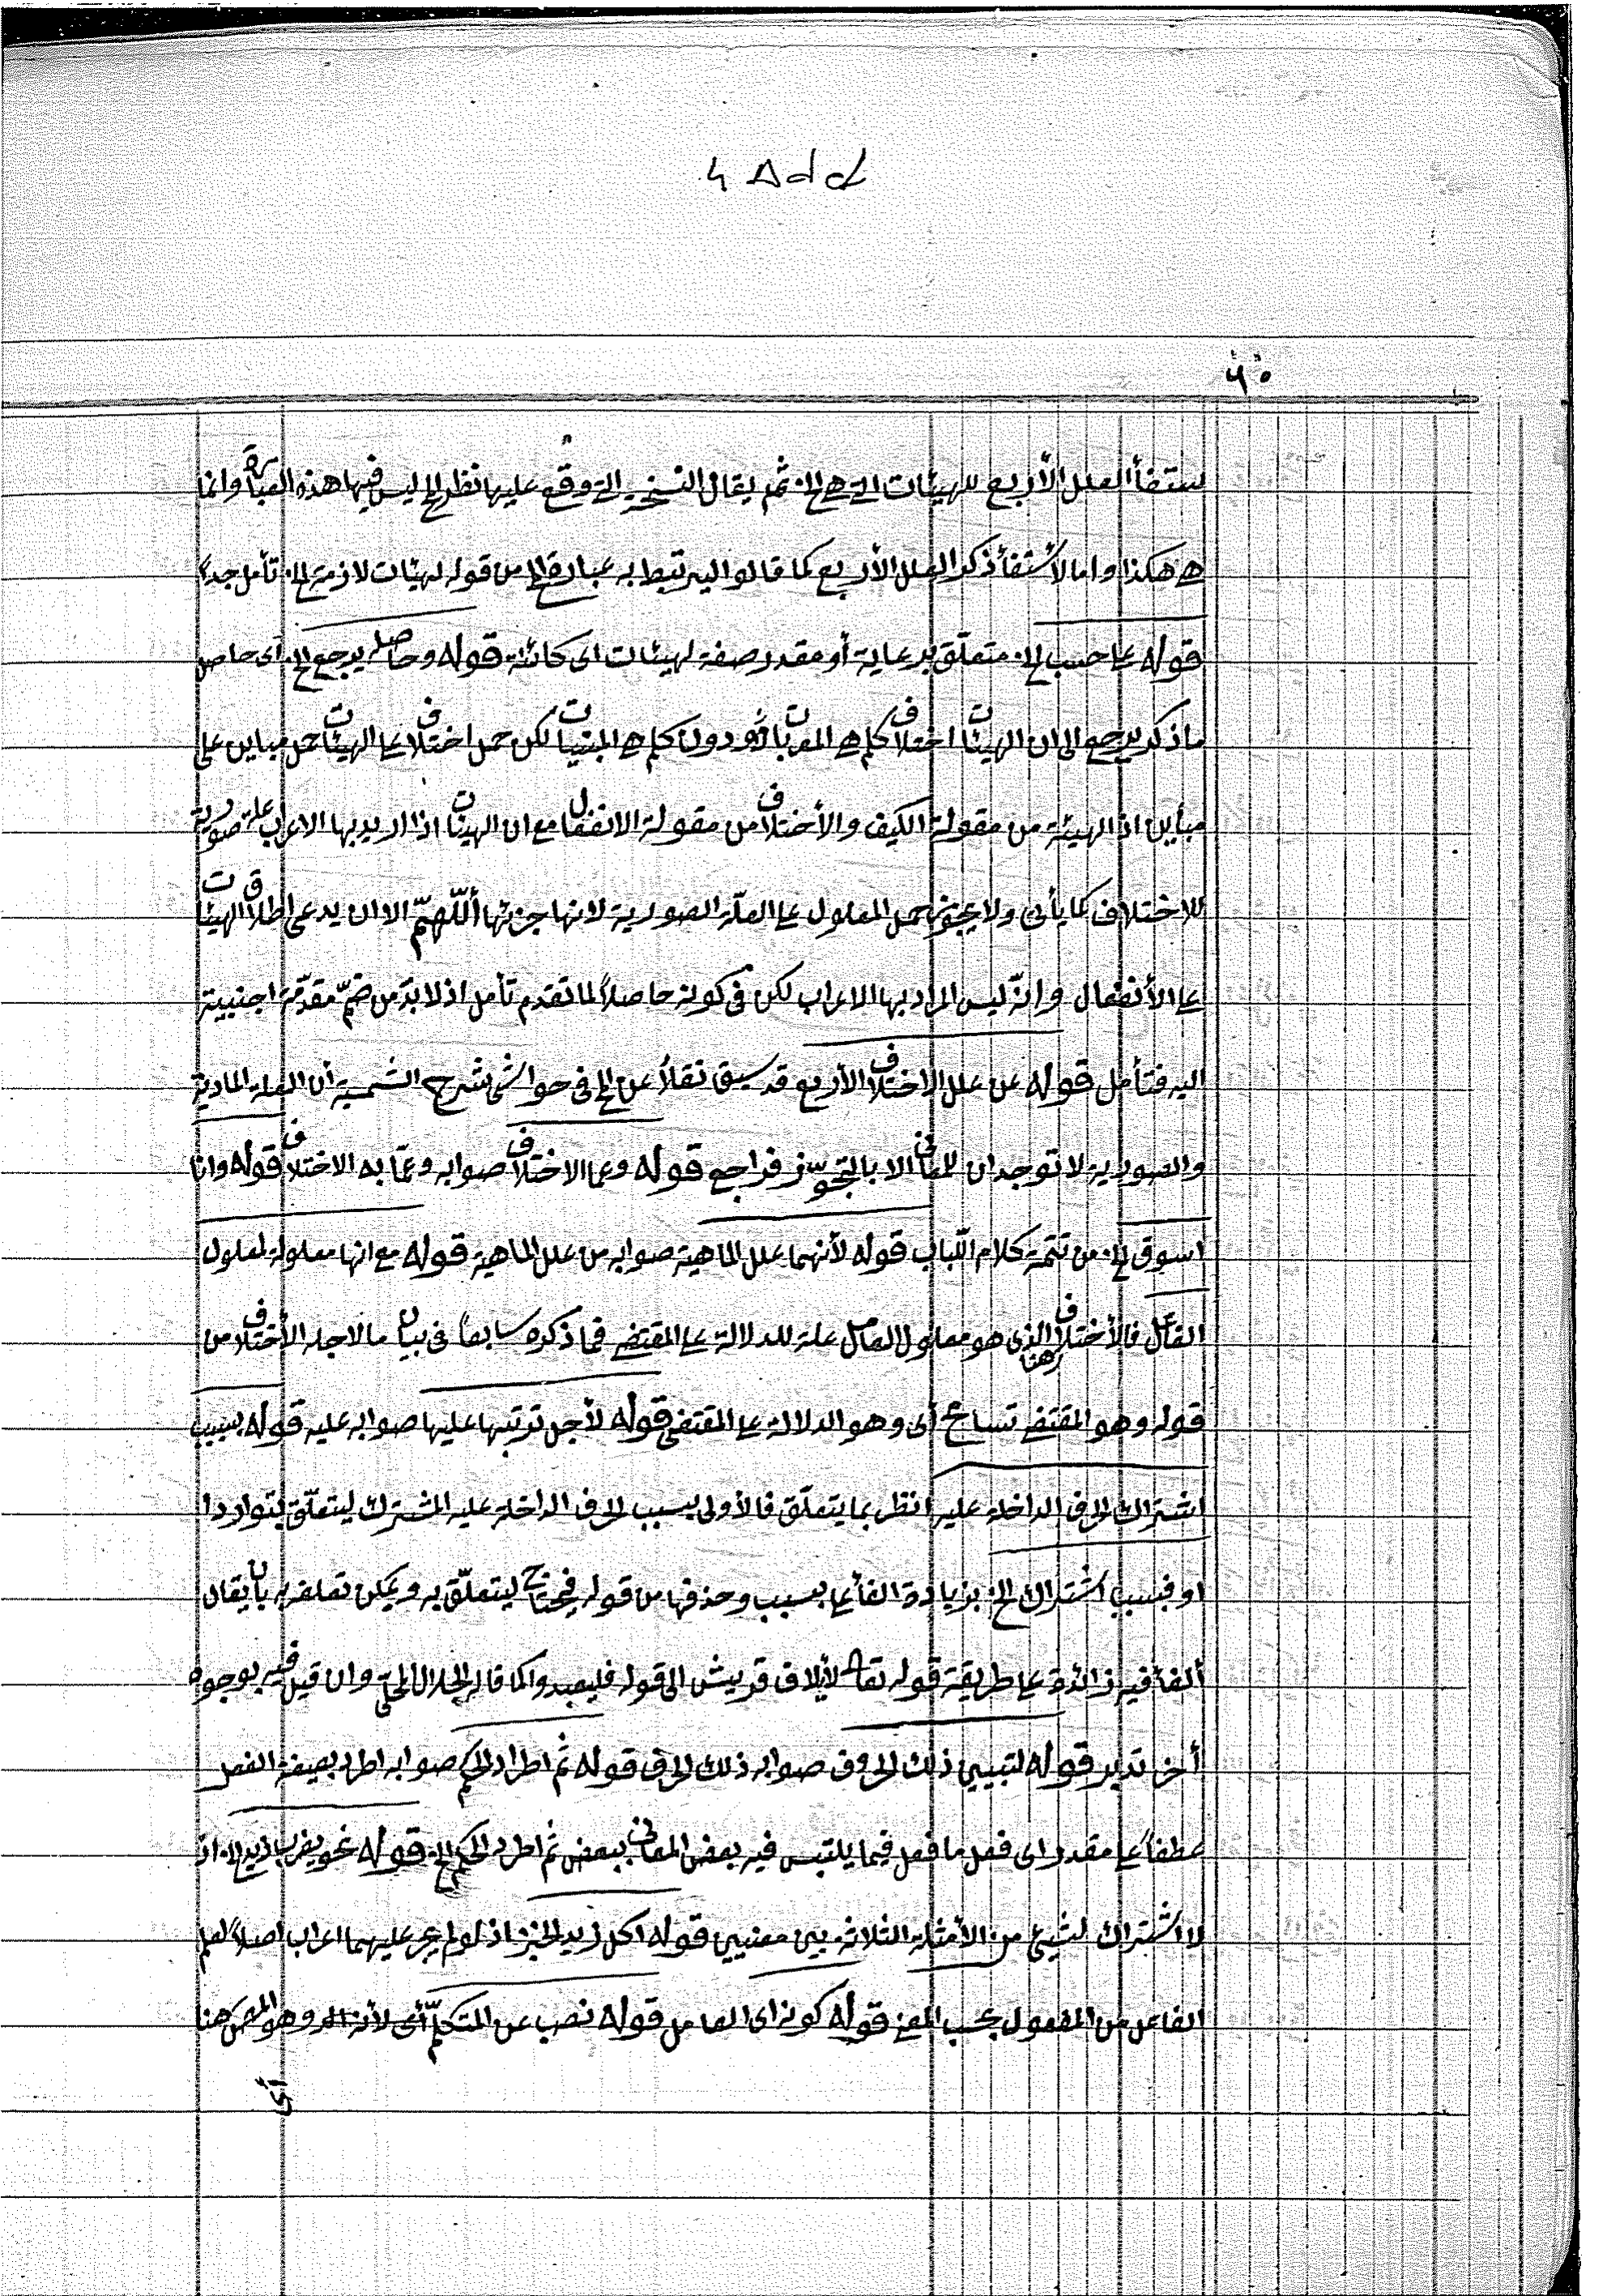 4 Add
٦٠
لستفأ العلل الأربع للهيئات التے هے الخ ثم يقال النسخۃ التے وقع عليها نظر الخ ليس فيها هذه العبارة وانما
هے هكذا واما لأستفأ ذكر العلل الأربع كما قالوا ليرتبط به عبارة الخ من قوله لهيئات لازمة الخ تأمل جداً
قوله علے حسب الخ متعلّق برعاية أو مقدر صفة لهيئات اى كائنة قوله وحاصله يرجع الخ أى حاصل
ما ذكر يرجع الى ان الهيئات اختلاف كلم هے المعربات دون كلم هے المبنيات لكن حمل اختلاف علے الهيئات حمل مباين على
مبأين اذ الهيئة من مقولة الكيف والأختلاف من مقولة الانفعال مع ان الهيئات اذا اريد بها الاعراب علة صورية
للاختلاف كما يأتى ولا يجوز حمل المعلول علے العلّة الصورية لانها جزئها أللّهمّ الا ان يدعى اطلاق الهيئات
علے الأنفعال وانّه ليس المراد بها الاعراب لكن فى كونه حاصلاً لما تقدم تأمل اذ لا بدّ من ضمّ مقدّمة اجنبية
اليه فتأمل قوله عن علل الاختلاف الأربع قد سبق نقلاً عن الخ فى حواشى شرح الشمسية أن العلة المادية
والصورية لا توجدان للمعانى الا بالتجوّز فراجع قوله وعما الاختلاف صوابه وعمّا به الاختلاف قوله وانا
اسوق الخ من تتمة كلام اللّباب قوله لأنهما علل الماهية صوابه من علل الماهية قوله مع انها معلولة لمعلول
العامل فالأختلاف الذى هو معلول العامل علة للدلالة علے المقتضے فما ذكره سابعاً فى بيان ما لاجله الأختلاف من
هنا
قوله وهو المقتضے تسامح أى وهو الدلالة علے المقتضى قوله لأجل ترتبها عليها صوابه عليه قوله بسبب
اشتراك الحرف الداخلة عليه انظر بما يتعلّق فالأولى بسبب الحرف الداخلة عليه المشترك ليتعلّق بتواردا
او فبسبب اشتراك الخ بزيادة الفأ علے بسبب وحذفها من قوله فيحتاج ليتعلّق به ويمكن تعلقه به بان يقال
ألفأ فيه زائدة علے طريقة قوله تعا لأيلاف قريش الى قوله فليعبدوا كما قاله الجلال المحلّى وان قيل فيه بوجوه
أخر تدبر قوله لتبيين ذلك الحروف صوابه ذلك الحرف قوله ثم اطراد الحكم صوابه اطرد بصيغة الفعل
عطفاً علے مقدر اى فعل ما فعل فيما يلتبس فيه بعض المعانى ببعض ثم اطرد الحكم الخ قوله نحو يضرب زيد الخ اذ
لا اشتراك لشيئ من الأمثلة الثلاثة بين معنيين قوله اكل زيد الخبز اذ لو لم يجر عليهما اعراب اصلاً لعلم
الفاعل من المفعول بحسب المعنے قوله كونه اى العامل قوله نصب عن المتكلّم أى لأنه وهو هنا
أى